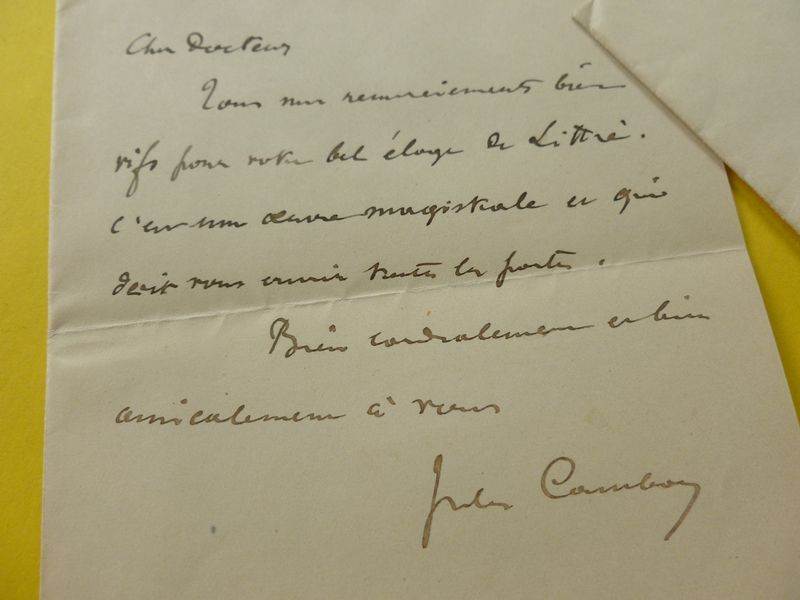 Cher Docteur
Tous mes remerciements bien
vifs pour votre bel éloge de Littré.
C'est une œuvre magistrale et qui
doit vous ouvrir toutes les portes.
Bien cordialement et bien
amicalement à vous
Jules Cambon